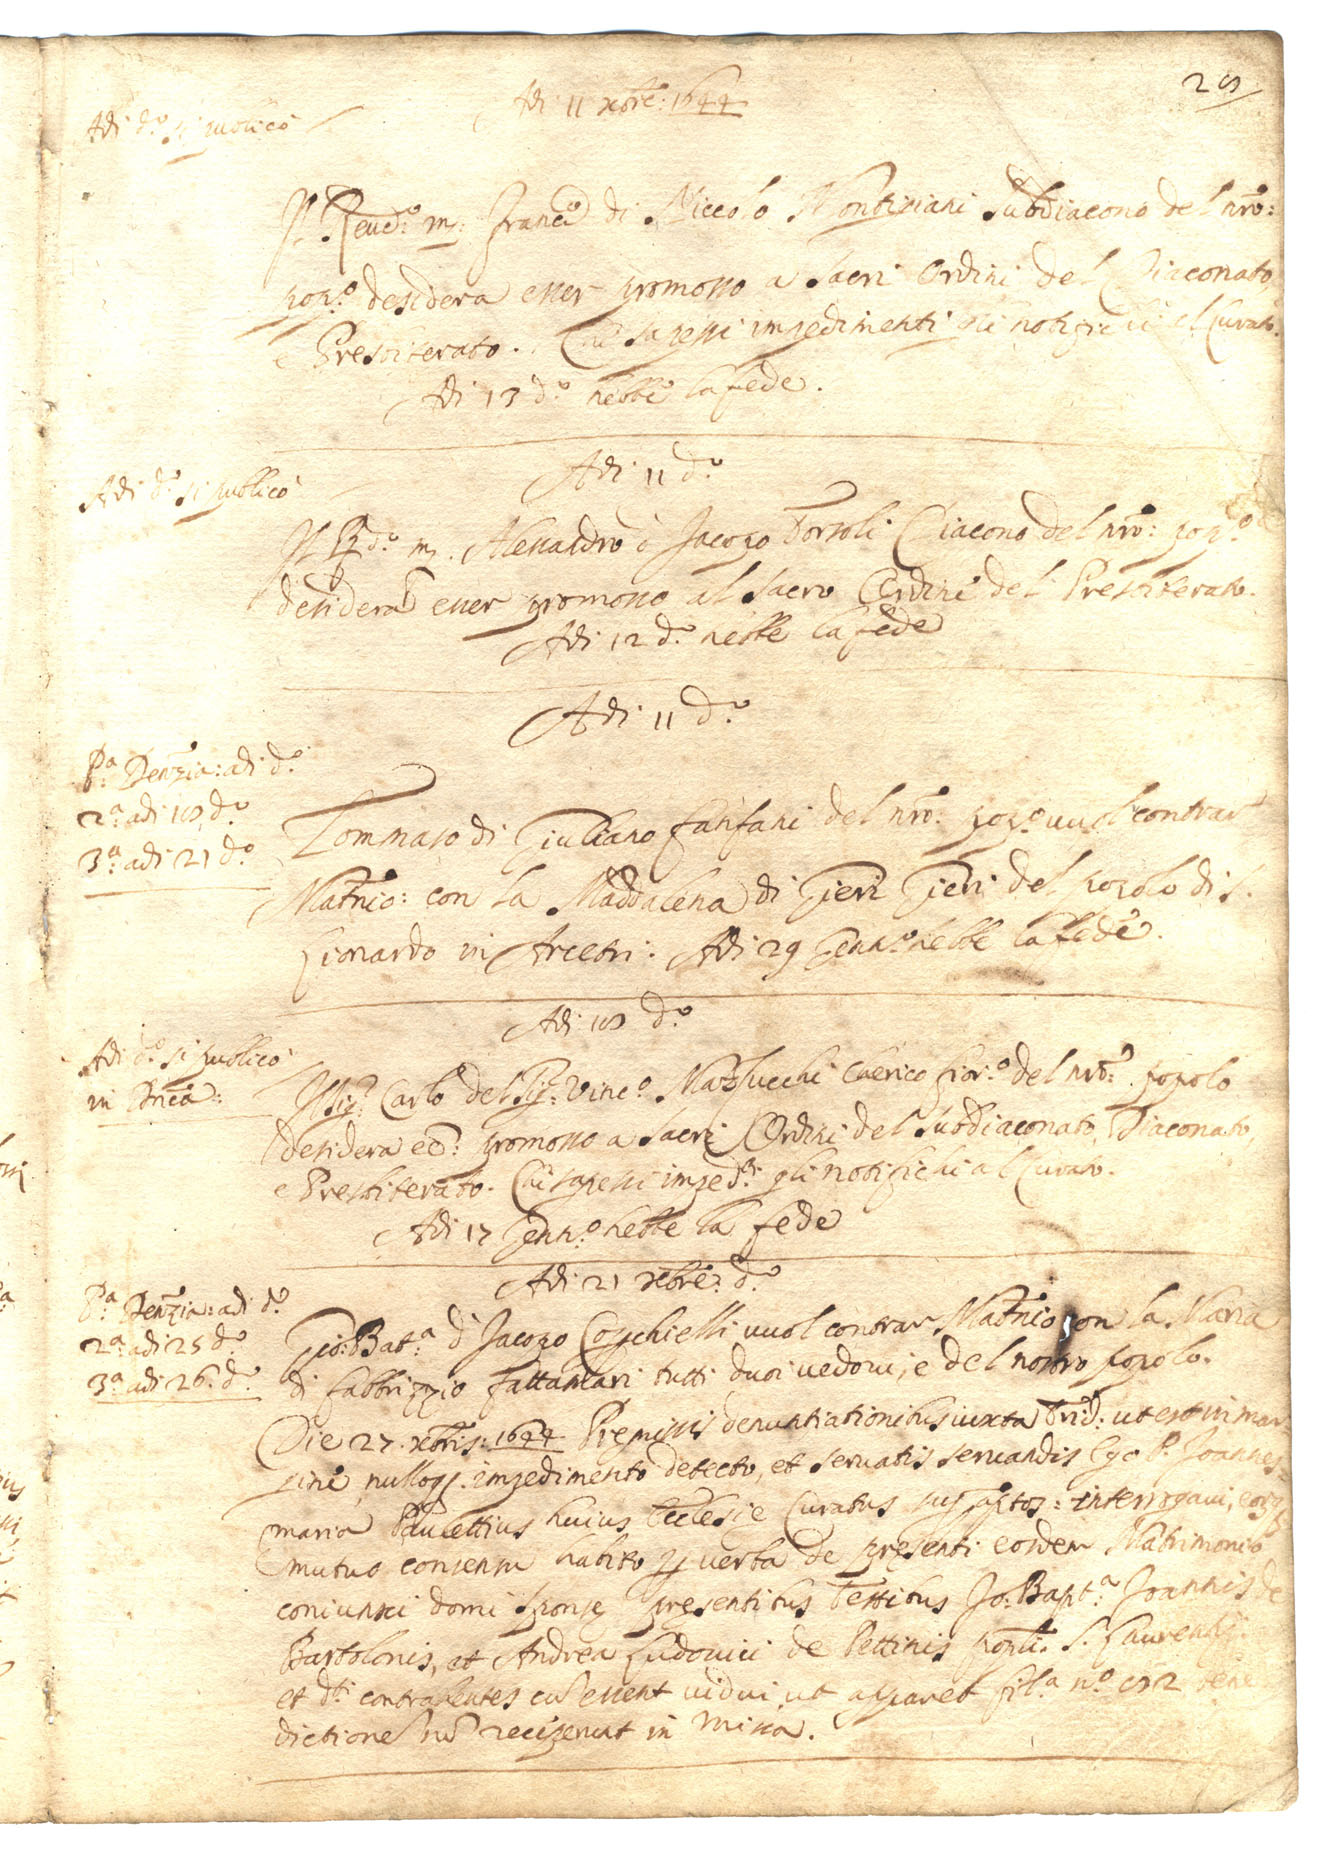 Adi 11 xbre: 1644
Adi d.º si publicò
Il Reud:º m: Franc.º di Niccolò Suddiacono del nrō:
pop.º desidera esser promosso a sacri Ordini del Diaconato,
e Presbiterato. Chi sapessi impedimenti gli notifichi al Curato.
Adi 13 d.º hebbe la fede.
Adi 11 d.º
Adi d.º si publicò
Il R d.º m. Alessandro d Jacopo Borsoli Diacono del nrō: pop.º
desidera esser promosso al sacro Ordine del Presbiterato.
Adi 12 d.º hebbe la fede
Adi 11 d.º
P.ª Denzia: adi d.º
2.ª adi 18 d.º
3.ª adi 21 d.º
Tommaso di Giuliano Fanfani del nrō: pop.º vuol contrar
Matnio: con la Maddalena di Pieri Pieri del popolo di S.
Lionardo in Arcetri. Adi 29 Genn.º hebbe la fede.
Adi 18 d.º
Adi d.º si publicò
in Dnca:
Il Sig.r Carlo del Sig: Vinc.º Mazzucchi Cherico fior.º del nrō: popolo
desidera eē: promosso a sacri Ordini del Suddiaconato, Diaconato,
e Presbiterato. Chi sapessi imped.ti gli notifichi al Curato.
Adi 17 Genn.º hebbe la fede
Adi 21 xbre: d.º
P.ª Denzia: adi d.º
2.ª adi 25 d.º
3.ª adi 26 d.º
Gio: Bat.ª d Jacopo Coschielli vuol contrar Matnio con la Maria
di Fabbrizzio Fattantari tutti duoi vedoui, e del nostro popolo.
Die 27 xbris: 1644 Premissis denuntiationibus iuxta Trid: ut est in mar
gine, nulloq. impedimento detecto, et seruatis seruandis Ego P. Joannes
maria Paulettius huius Ecclesie Curatus sup.ª ptos: interrogaui, eorq
mutuo consensu habito p uerba de presenti eosdem Matrimonio
coniunxi domi sponse presentibus Testibus Jo: Bapt.ª Joannis de
Bartolonis, et Andrea Ludouici de Pettinis popli. S. Laurentij.
et dti contrahentes cū essent uidui, ut apparet fil.ª n.º 82 bene
dictione nō receperunt in missa.